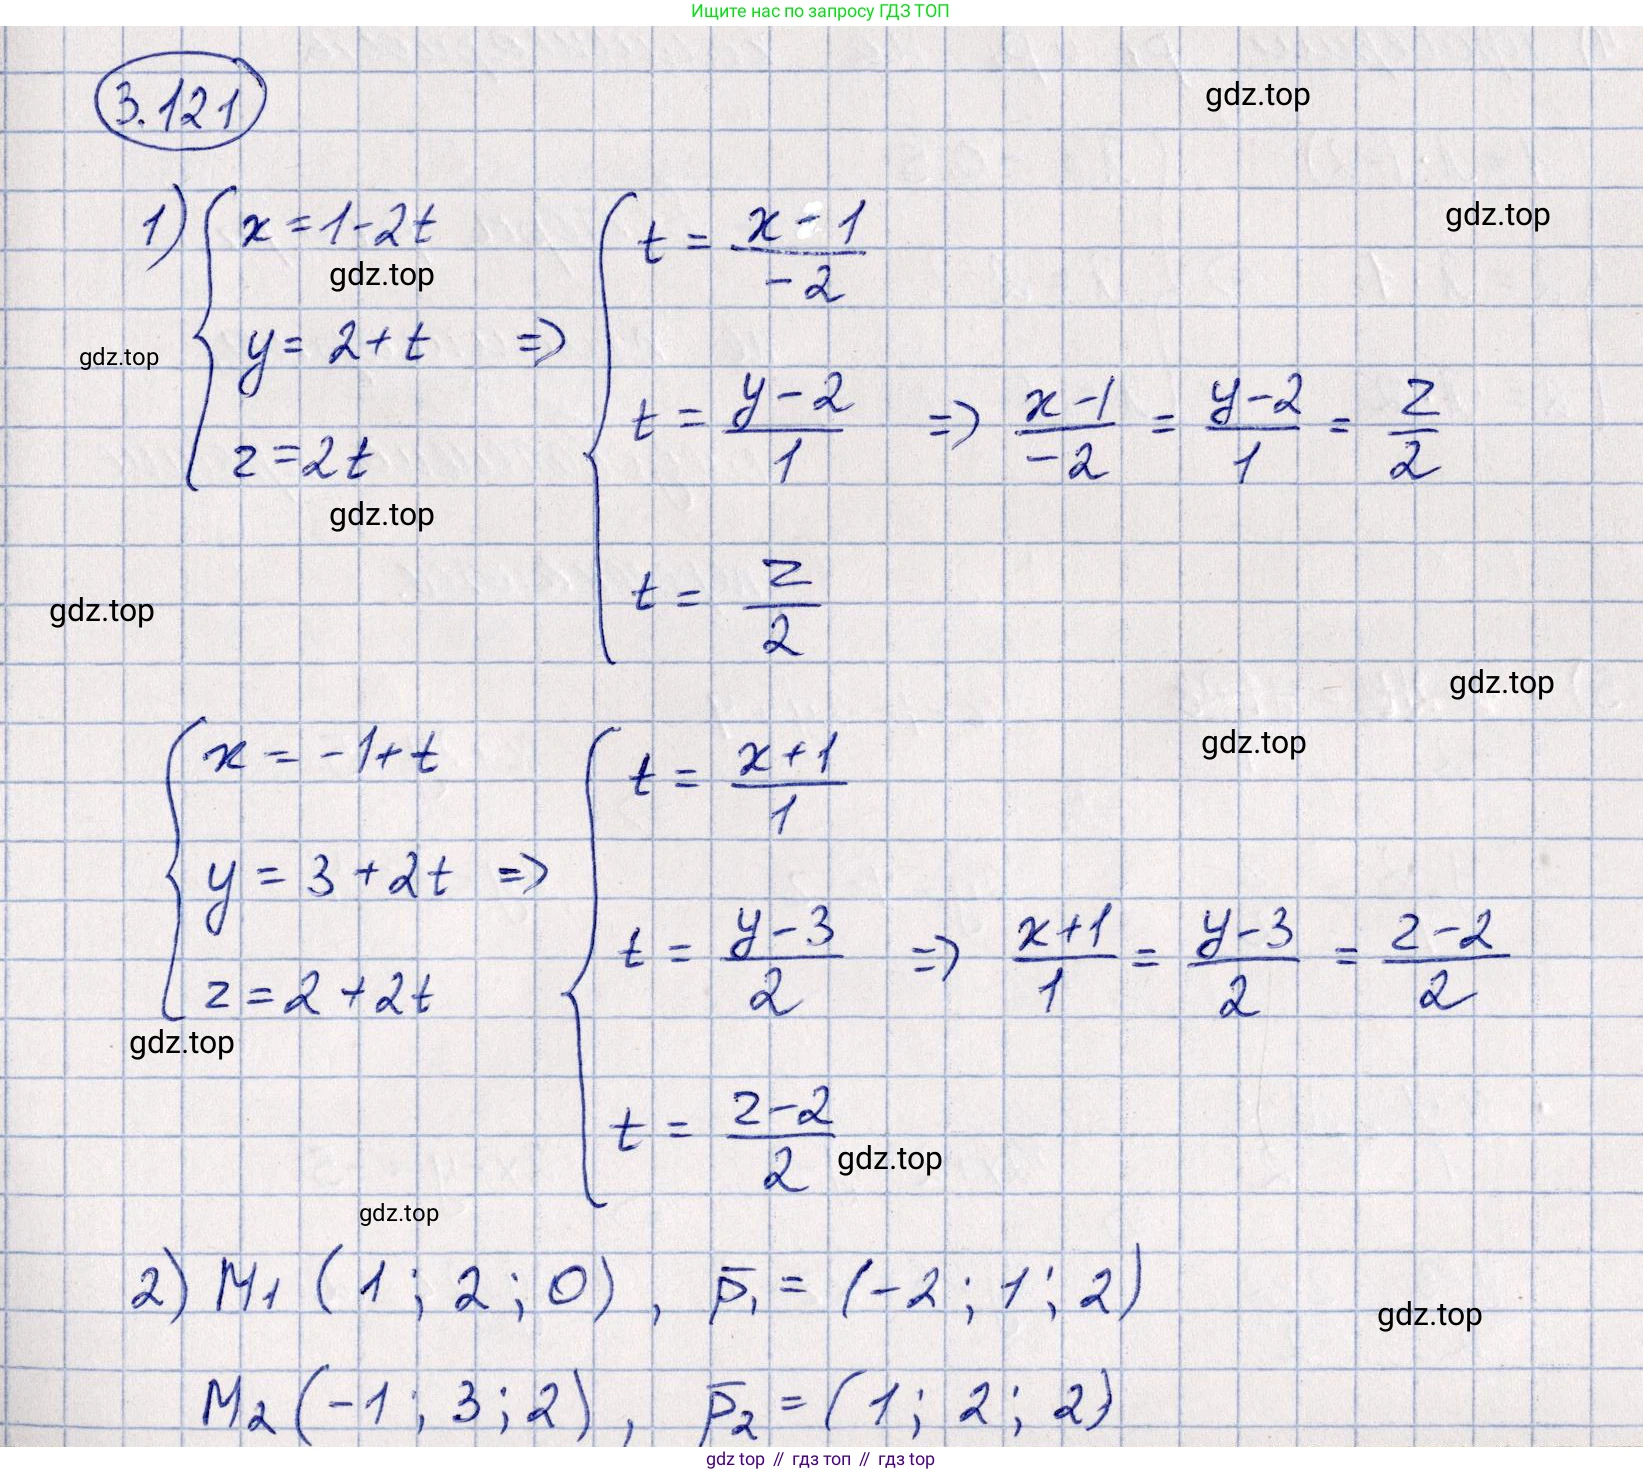 Ищите нас по запросу ГДЗ ТОП
3.121
gdz.top
gdz.top
1) { x = 1 - 2t
gdz.top
y = 2 + t
z = 2t
=>
{ t = (x - 1)/(-2)
t = (y - 2)/1
t = z/2
=> (x - 1)/(-2) = (y - 2)/1 = z/2
gdz.top
gdz.top
gdz.top
gdz.top
gdz.top
{ x = -1 + t
y = 3 + 2t
z = 2 + 2t
=>
{ t = (x + 1)/1
t = (y - 3)/2
t = (z - 2)/2
=> (x + 1)/1 = (y - 3)/2 = (z - 2)/2
gdz.top
gdz.top
gdz.top
2) M₁ (1; 2; 0), p̅₁ = (-2; 1; 2)
gdz.top
M₂ (-1; 3; 2), p̅₂ = (1; 2; 2)
gdz top // гдз топ // гдз top